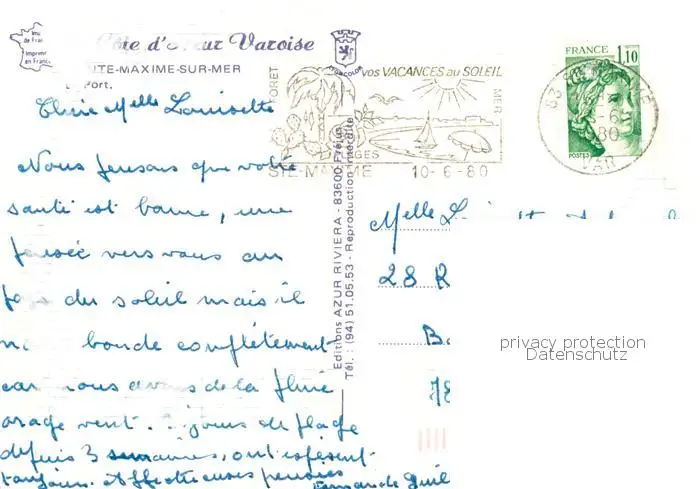 Imp.
de Fran
Imprimé
en France
Côte d'Azur Varoise
NTE-MAXIME-SUR-MER
Port.
AZUR COLOR
FORET
vos VACANCES au SOLEIL
MER
PLAGES
STE-MAXIME 10-6-80
FRANCE
1,10
POSTES
80
VAR
Chère Melle Louisette
Nous pensons que votre
santé est bonne, une
pensée vers vous au
pays du soleil mais il
boude complètement
car nous avons de la pluie
orage vent. jours de plage
depuis 3 semaines, ont
toujours. Affectueuses pensées
Fernande
Editions AZUR RIVIERA - 83600 Fréjus
Tél. : (94) 51.05.53 - Reproduction interdite
Melle
28 R
B
78
privacy protection
Datenschutz